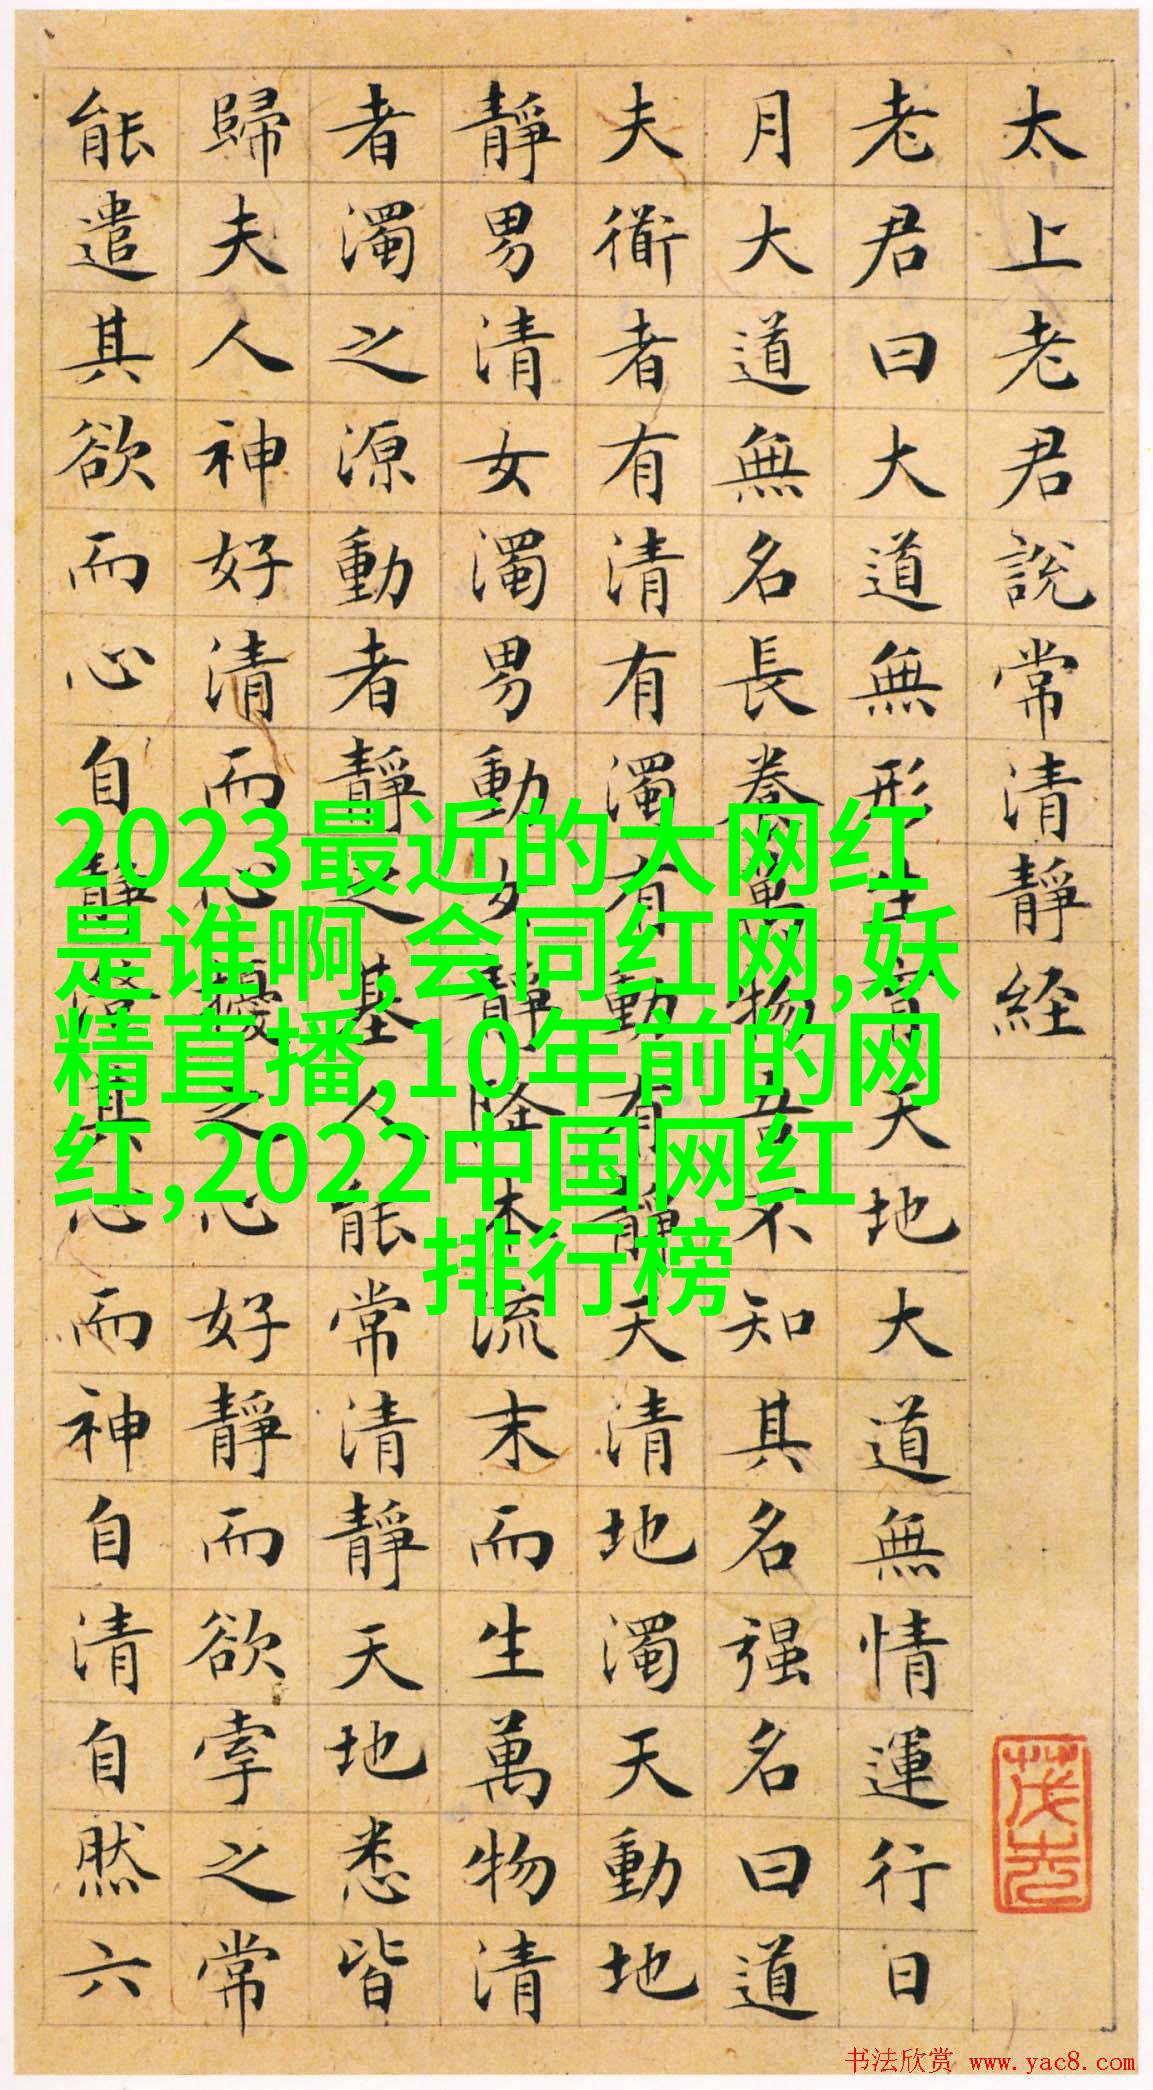 太上老君說常清靜経
老君曰大道無形生育天地大道無情運行日
月大道無名長養萬物吾不知其名强名曰道
夫衟者有清有濁有動有靜天清地濁天動地
靜男清女濁男動女靜降本流末而生萬物清
者濁之源動者靜之基人能常清靜天地悉皆
歸夫人神好清而心擾之心好靜而欲牽之常
能遣其欲而心自靜澄其心而神自清自然六
2023最近的大网红
是谁啊,会同红网,妖
精直播,10年前的网
红,2022中国网红
排行榜
书法欣赏 www.yac8.com